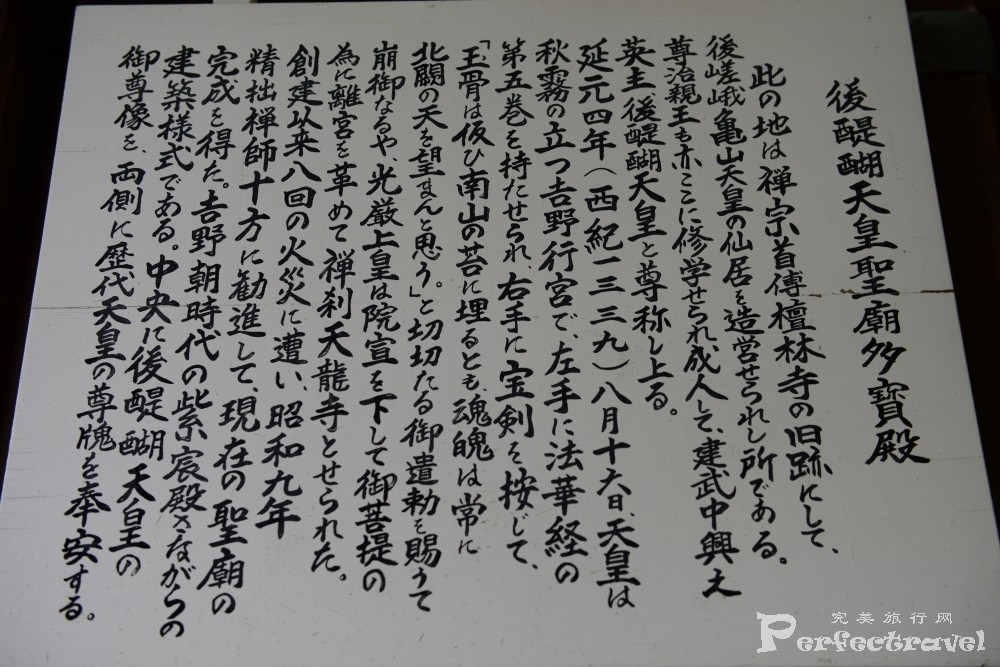 後醍醐天皇聖廟多寶殿
此の地は禅宗首傳檀林寺の旧跡にして、
後嵯峨亀山天皇の仙居を造営せられし所である。
尊治親王も亦ここに修学せられ成人して、建武中興之
英主後醍醐天皇と尊称し上る。
延元四年(西紀一三三九)八月十六日、天皇は
秋霧の立つ吉野行宮で、左手に法華経の
第五巻を持たせられ、右手に宝剣を按じて、
「玉骨は仮ひ南山の苔に埋るとも、魂魄は常に
北闕の天を望まんと思う。」と切切たる御遺勅を賜うて
崩御なるや、光厳上皇は院宣を下して御菩提の
為に離宮を革めて禅刹天龍寺とせられた。
創建以来八回の火災に遭い、昭和九年
精拙禅師十方に勧進して、現在の聖廟の
完成を得た。吉野朝時代の紫宸殿さながらの
建築様式である。中央に後醍醐天皇の
御尊像を、両側に歴代天皇の尊牌を奉安する。
完美旅行网
Perfectravel